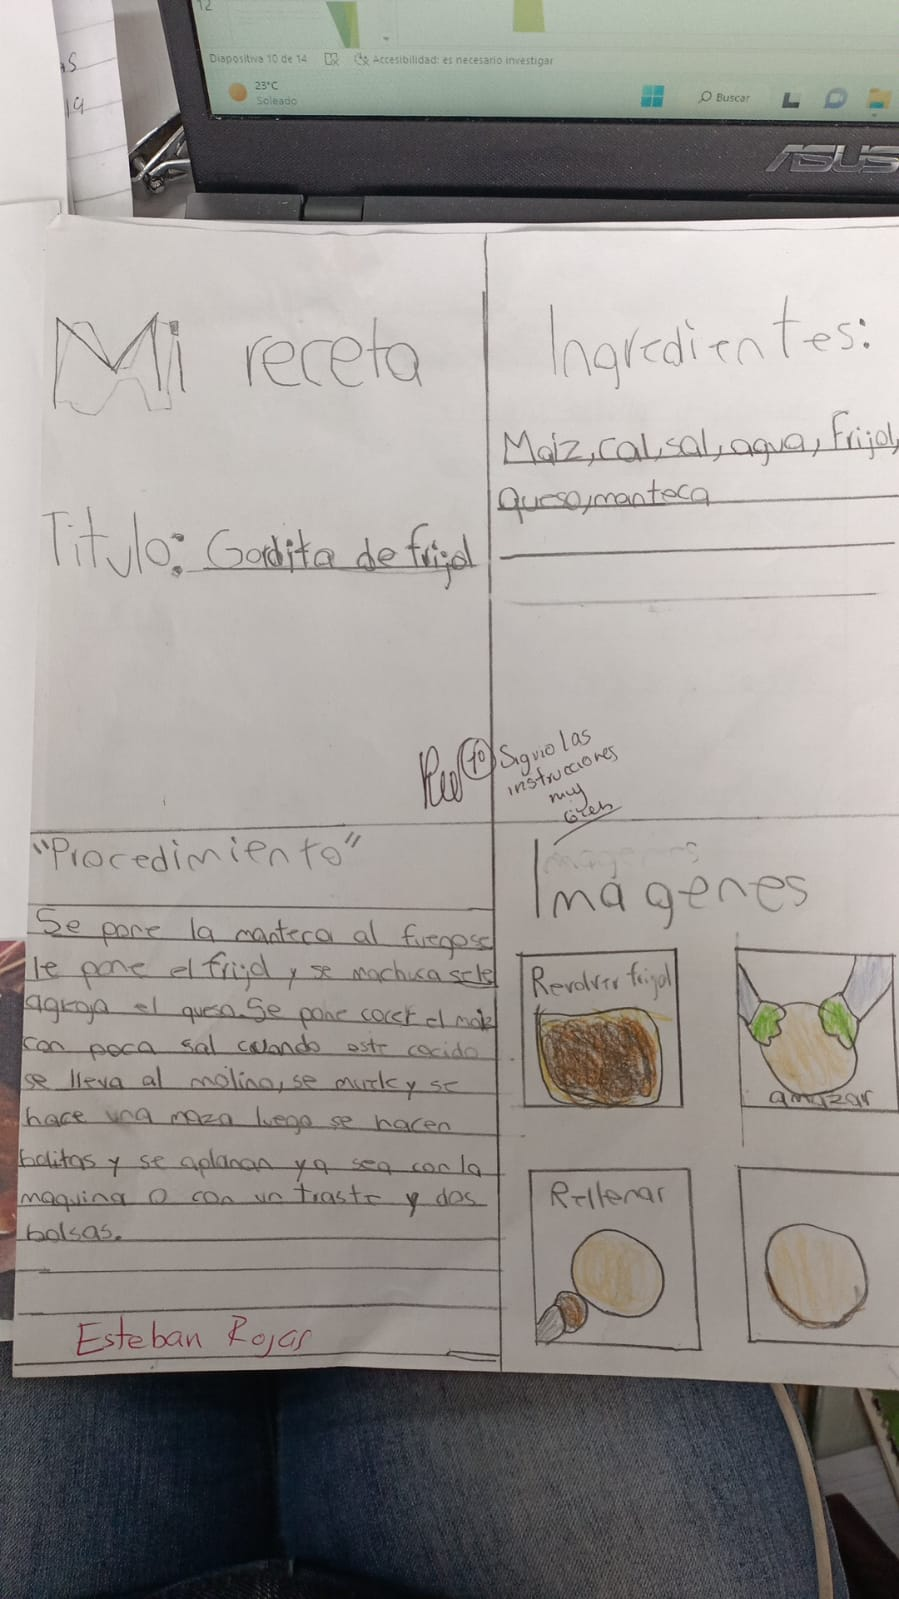 12
Diapositiva 10 de 14
Accesibilidad: es necesario investigar
23°C
Soleado
Buscar
ASUS
Mi receta
Titulo: Gordita de frijol
Ingredientes:
Maiz, cal, sal, agua, frijol,
queso, manteca
10 Siguio las
instrucciones
muy
bien
"Procedimiento"
Se pone la manteca al fuego se
le pone el frijol y se machuca se le
agrega el queso. Se pone cocer el maiz
con poca sal cuando este cocido
se lleva al molino, se muele y se
hace una maza luego se hacen
bolitas y se aplanan ya sea con la
maquina o con un traste y dos
bolsas.
Esteban Rojas
Imágenes
Revolver frijol
amazar
Rellenar